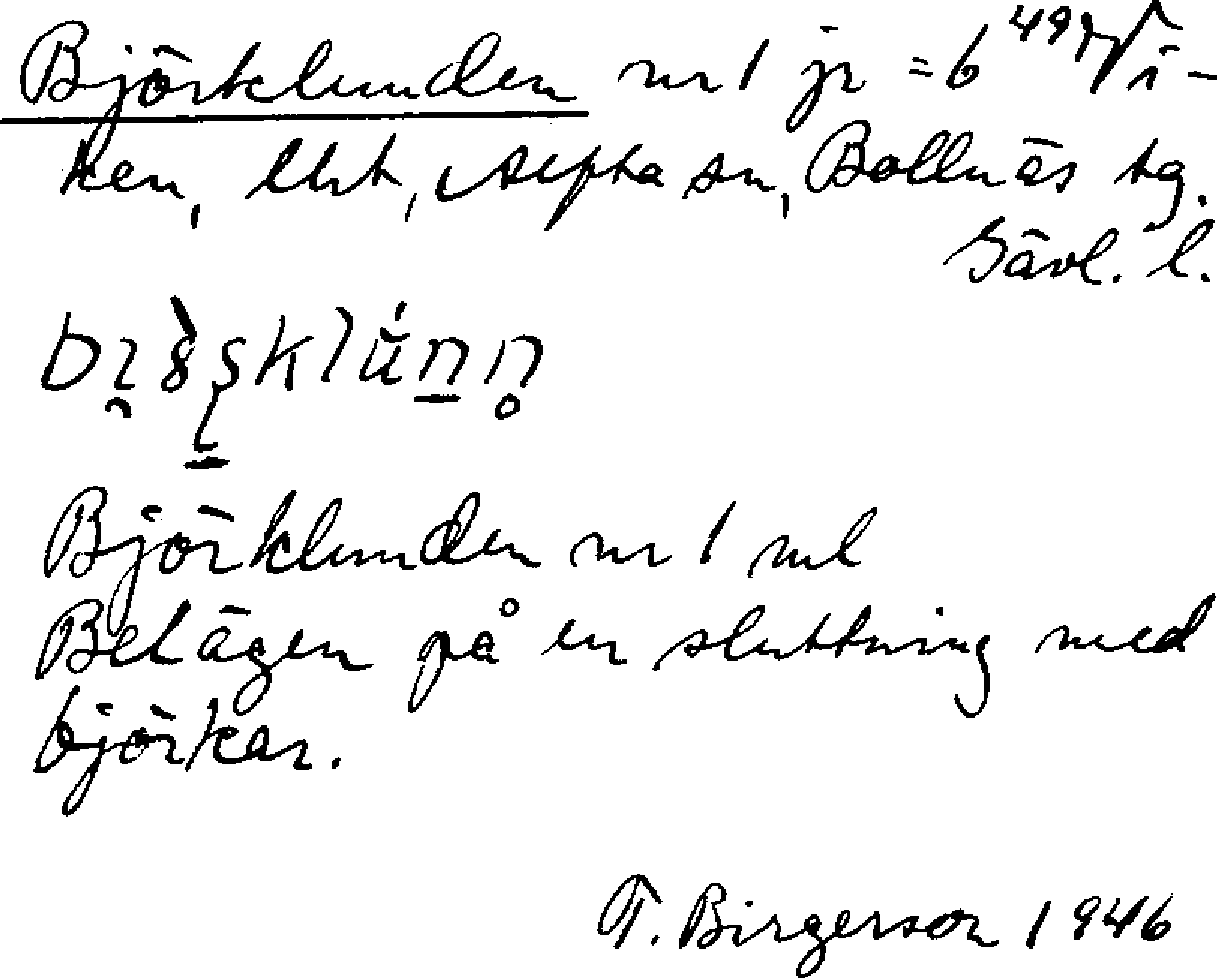 Björklunden nr 1 jr = 6⁴⁹ Vi-
ken, lht, Alfta sn, Bollnäs tg.
Gävl. l.
Björklunden nr 1 ml
Belägen på en sluttning med
björkar.
T. Birgerson 1946